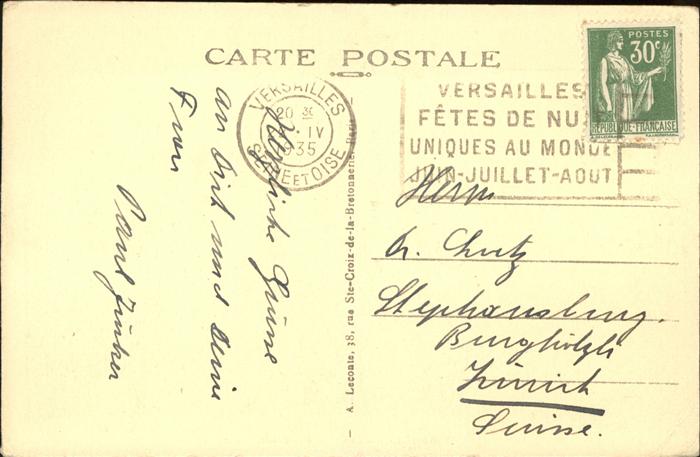 CARTE POSTALE
POSTES
30c
RÉPUBLIQUE-FRANÇAISE
VERSAILLES
20 30
IV
1935
SEINE ET OISE
VERSAILLES
FÊTES DE NUI
UNIQUES AU MONDE
JUIN-JUILLET-AOUT
Herzliche Grüsse
an Dich und Deine
Frau
Paul
A. Leconte, 38, rue Ste-Croix-de-la-Bretonnerie, Paris
Herrn
Dr.
Stephansburg.
Burghölzli
Zürich
Suisse.